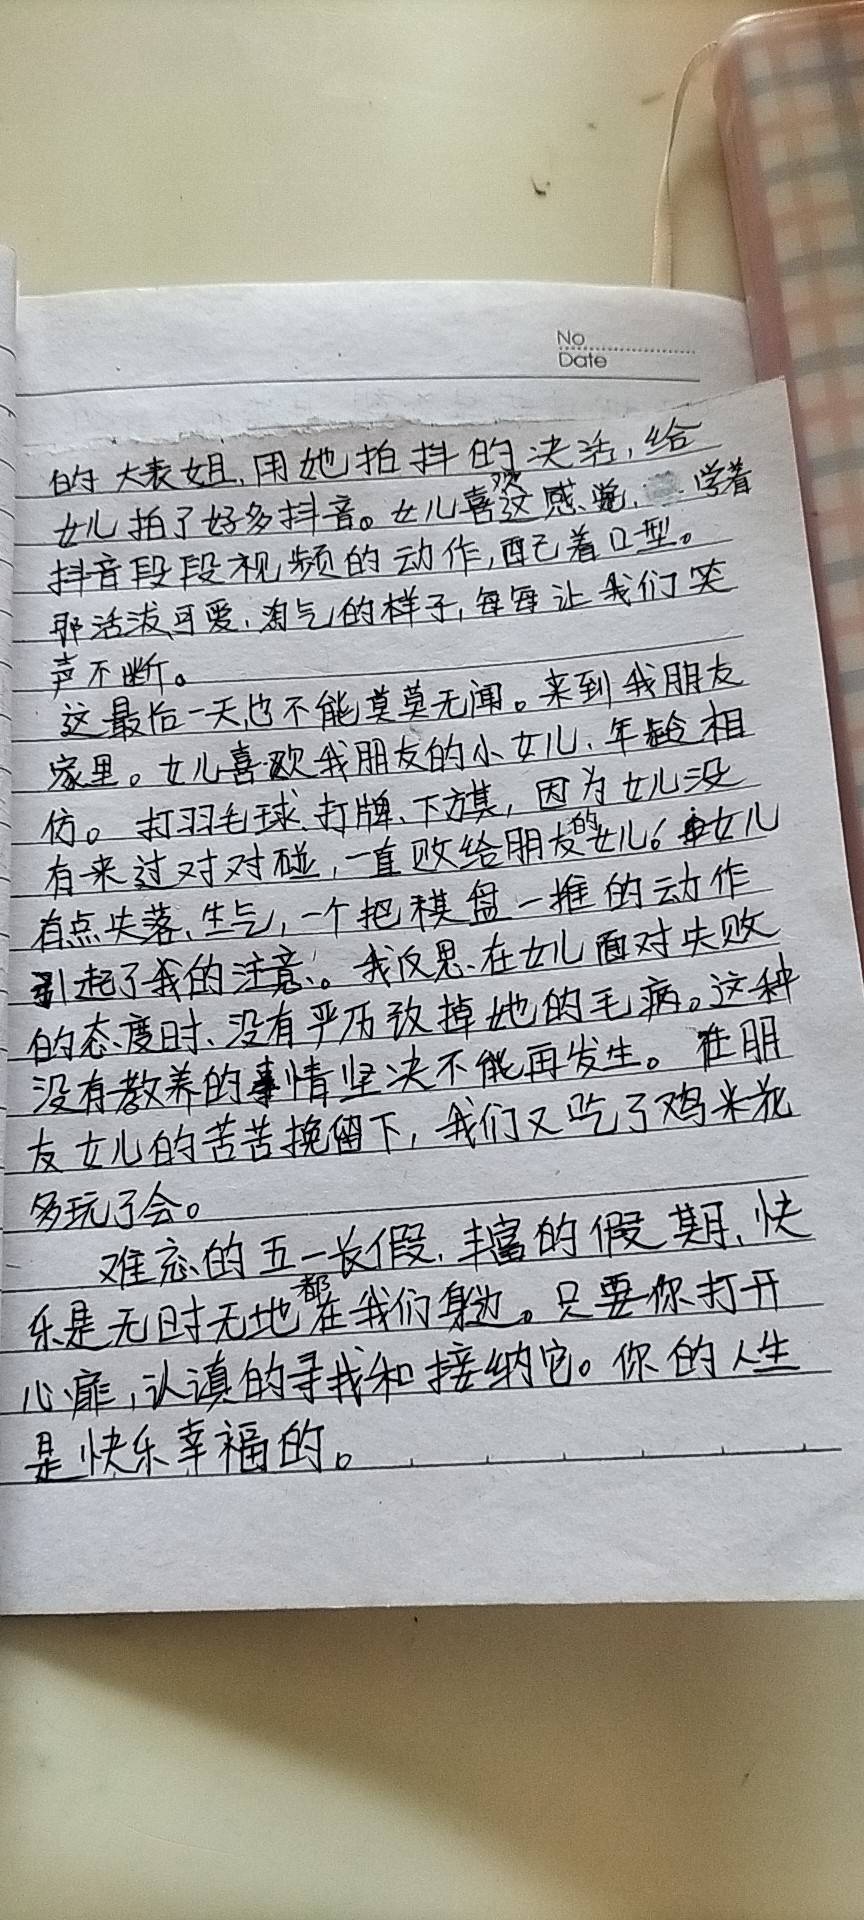 No
Date
的大表姐,用她拍抖的决活,给
女儿拍了好多抖音。女儿喜欢这感觉,学着
抖音段段视频的动作,配着口型。
那活泼可爱,淘气的样子,每每让我们笑
声不断。
这最后一天也不能莫莫无闻。来到我朋友
家里。女儿喜欢我朋友的小女儿、年龄相
仿。打羽毛球、打牌、下方棋,因为女儿没
有来过对对碰,一直败给朋友的女儿。女儿
有点失落、生气,一个把棋盘一推的动作
引起了我的注意。我反思、在女儿面对失败
的态度时、没有严历改掉她的毛病。这种
没有教养的事情坚决不能再发生。在朋
友女儿的苦苦挽留下,我们又吃了鸡米花
多玩了会。
难忘的五一长假,丰富的假期、快
乐是无时无地都在我们身边。只要你打开
心扉,认真的寻找和接纳它。你的人生
是快乐幸福的。